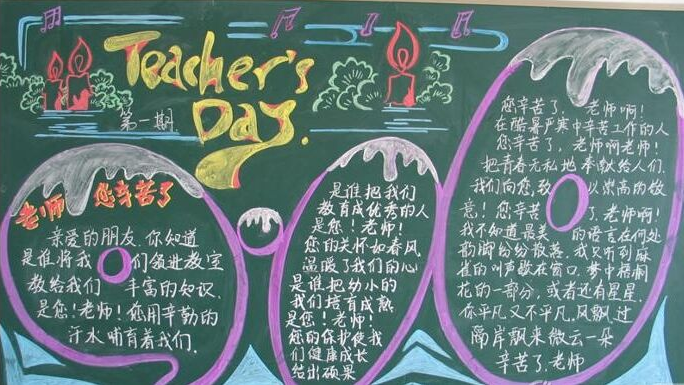 Teacher's
Day.
第一期
老师 您辛苦了
亲爱的朋友.你知道
是谁将我们领进教室
教给我们丰富的知识.
是您!老师!您用辛勤的
汗水哺育着我们.
是谁把我们
教育成优秀的人
是您!老师!
您的关怀如春风
温暖了我们的心
是谁把幼小的
我们培育成熟
是您!老师!
您的保护使我
们健康成长
结出硕果
您辛苦了,老师啊!
在酷暑严寒中辛苦工作的人
您辛苦了,老师啊老师!
把青春无私地奉献给人们.
我们向您,致以崇高的敬
意!您辛苦了.老师啊!
我不知道最美的语言在何处
韵脚纷纷散落.我只听到麻
雀的叫声歇在窗口.梦中梧桐
花的一部分,或者还有星星.
你平凡又不平凡,风飘过
隔岸飘来微云一朵
辛苦了.老师